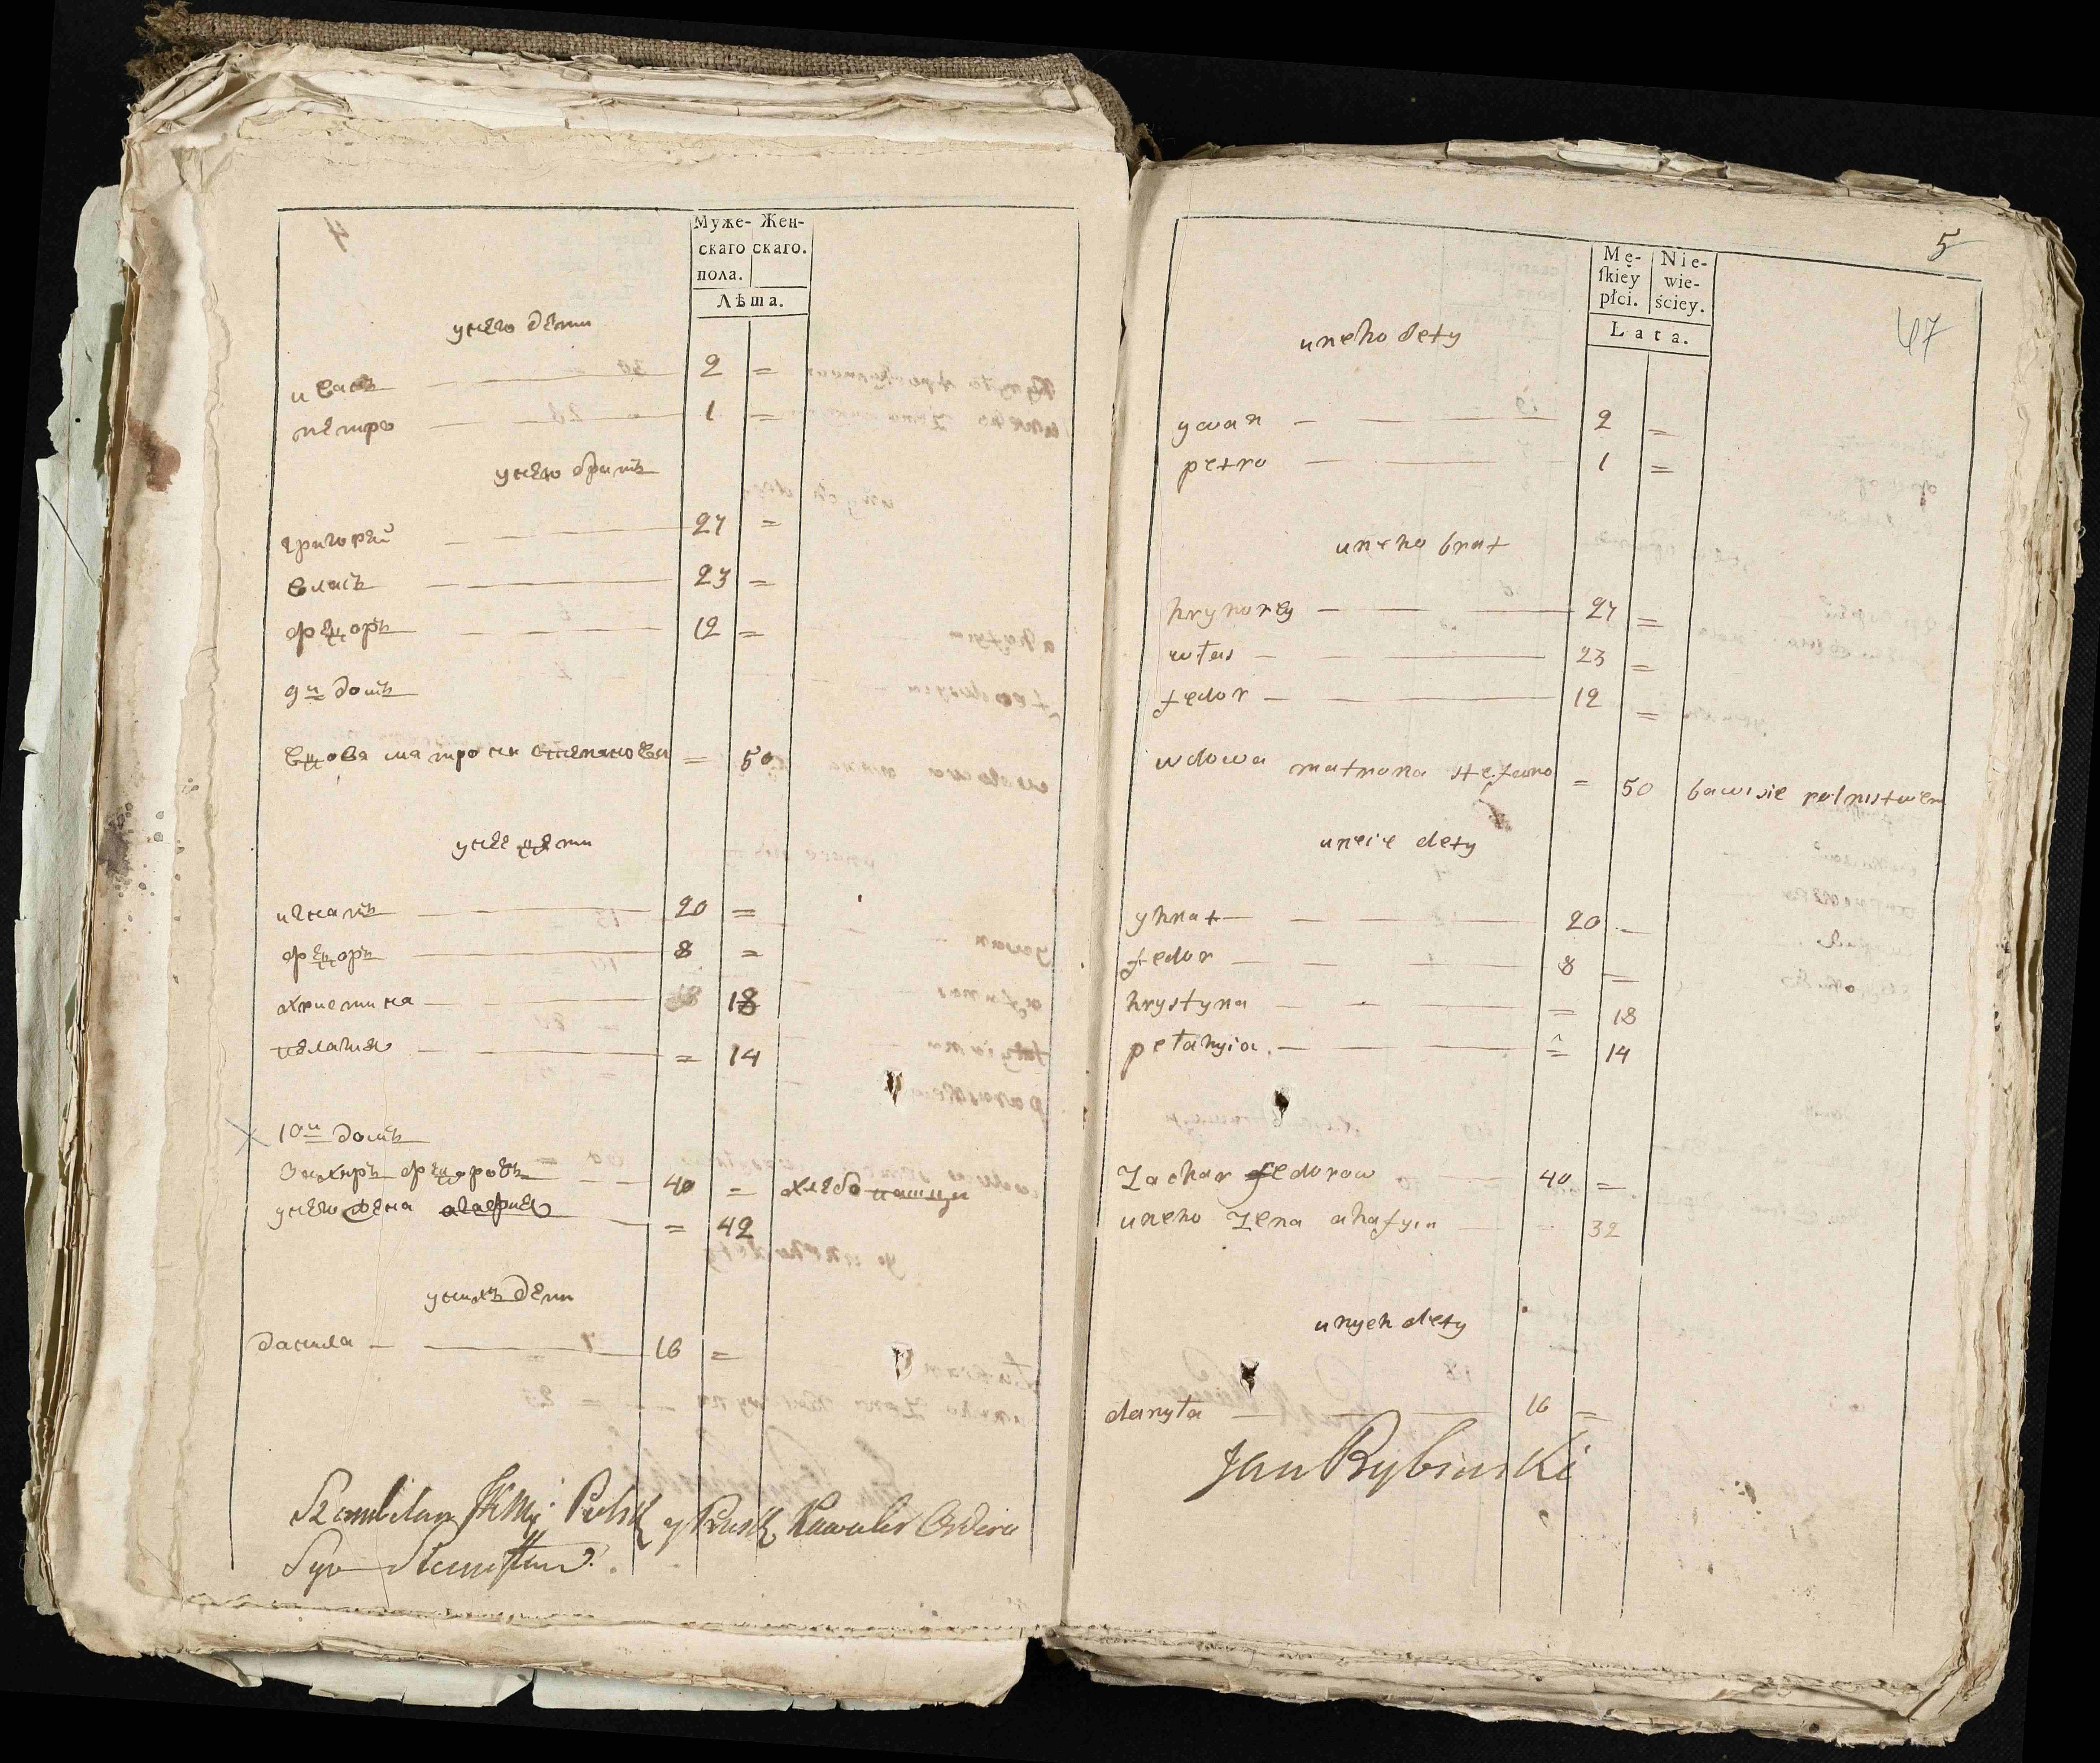 Муже- Жен-
скаго скаго.
пола.
Лѣта.
унего дети
иванъ 2 =
петро 1 =
унего братъ
григорей 27 =
власъ 23 =
федоръ 12 =
9й домъ
вдова матрона степанова = 50
унее дети
игнатъ 20 =
федоръ 8 =
христина 18
пелагия = 14
10й домъ
Захаръ федоровъ 40 = хлебопашци
унего жена агафия = 42
унихъ дети
данила 16 =
Szambelan JKMci Polsk y Prusk Kawaler Ordera
5
47
Mę- Nie-
ſkiey wie-
płci. ściey.
Lata.
uneho dety
ywan 2 =
petro 1 =
uneho brat
hryhorey 27 =
włas 23 =
fedor 12 =
wdowa matrona stefano = 50 bawi sie rolnistwem
uneie dety
yhnat 20 =
fedor 8 =
hrystyna = 18
pełahyia = 14
Zachar fedorow 40 =
uneho Zena ahafyia 32
unych dety
danyła 16 =
Jan Rybinski